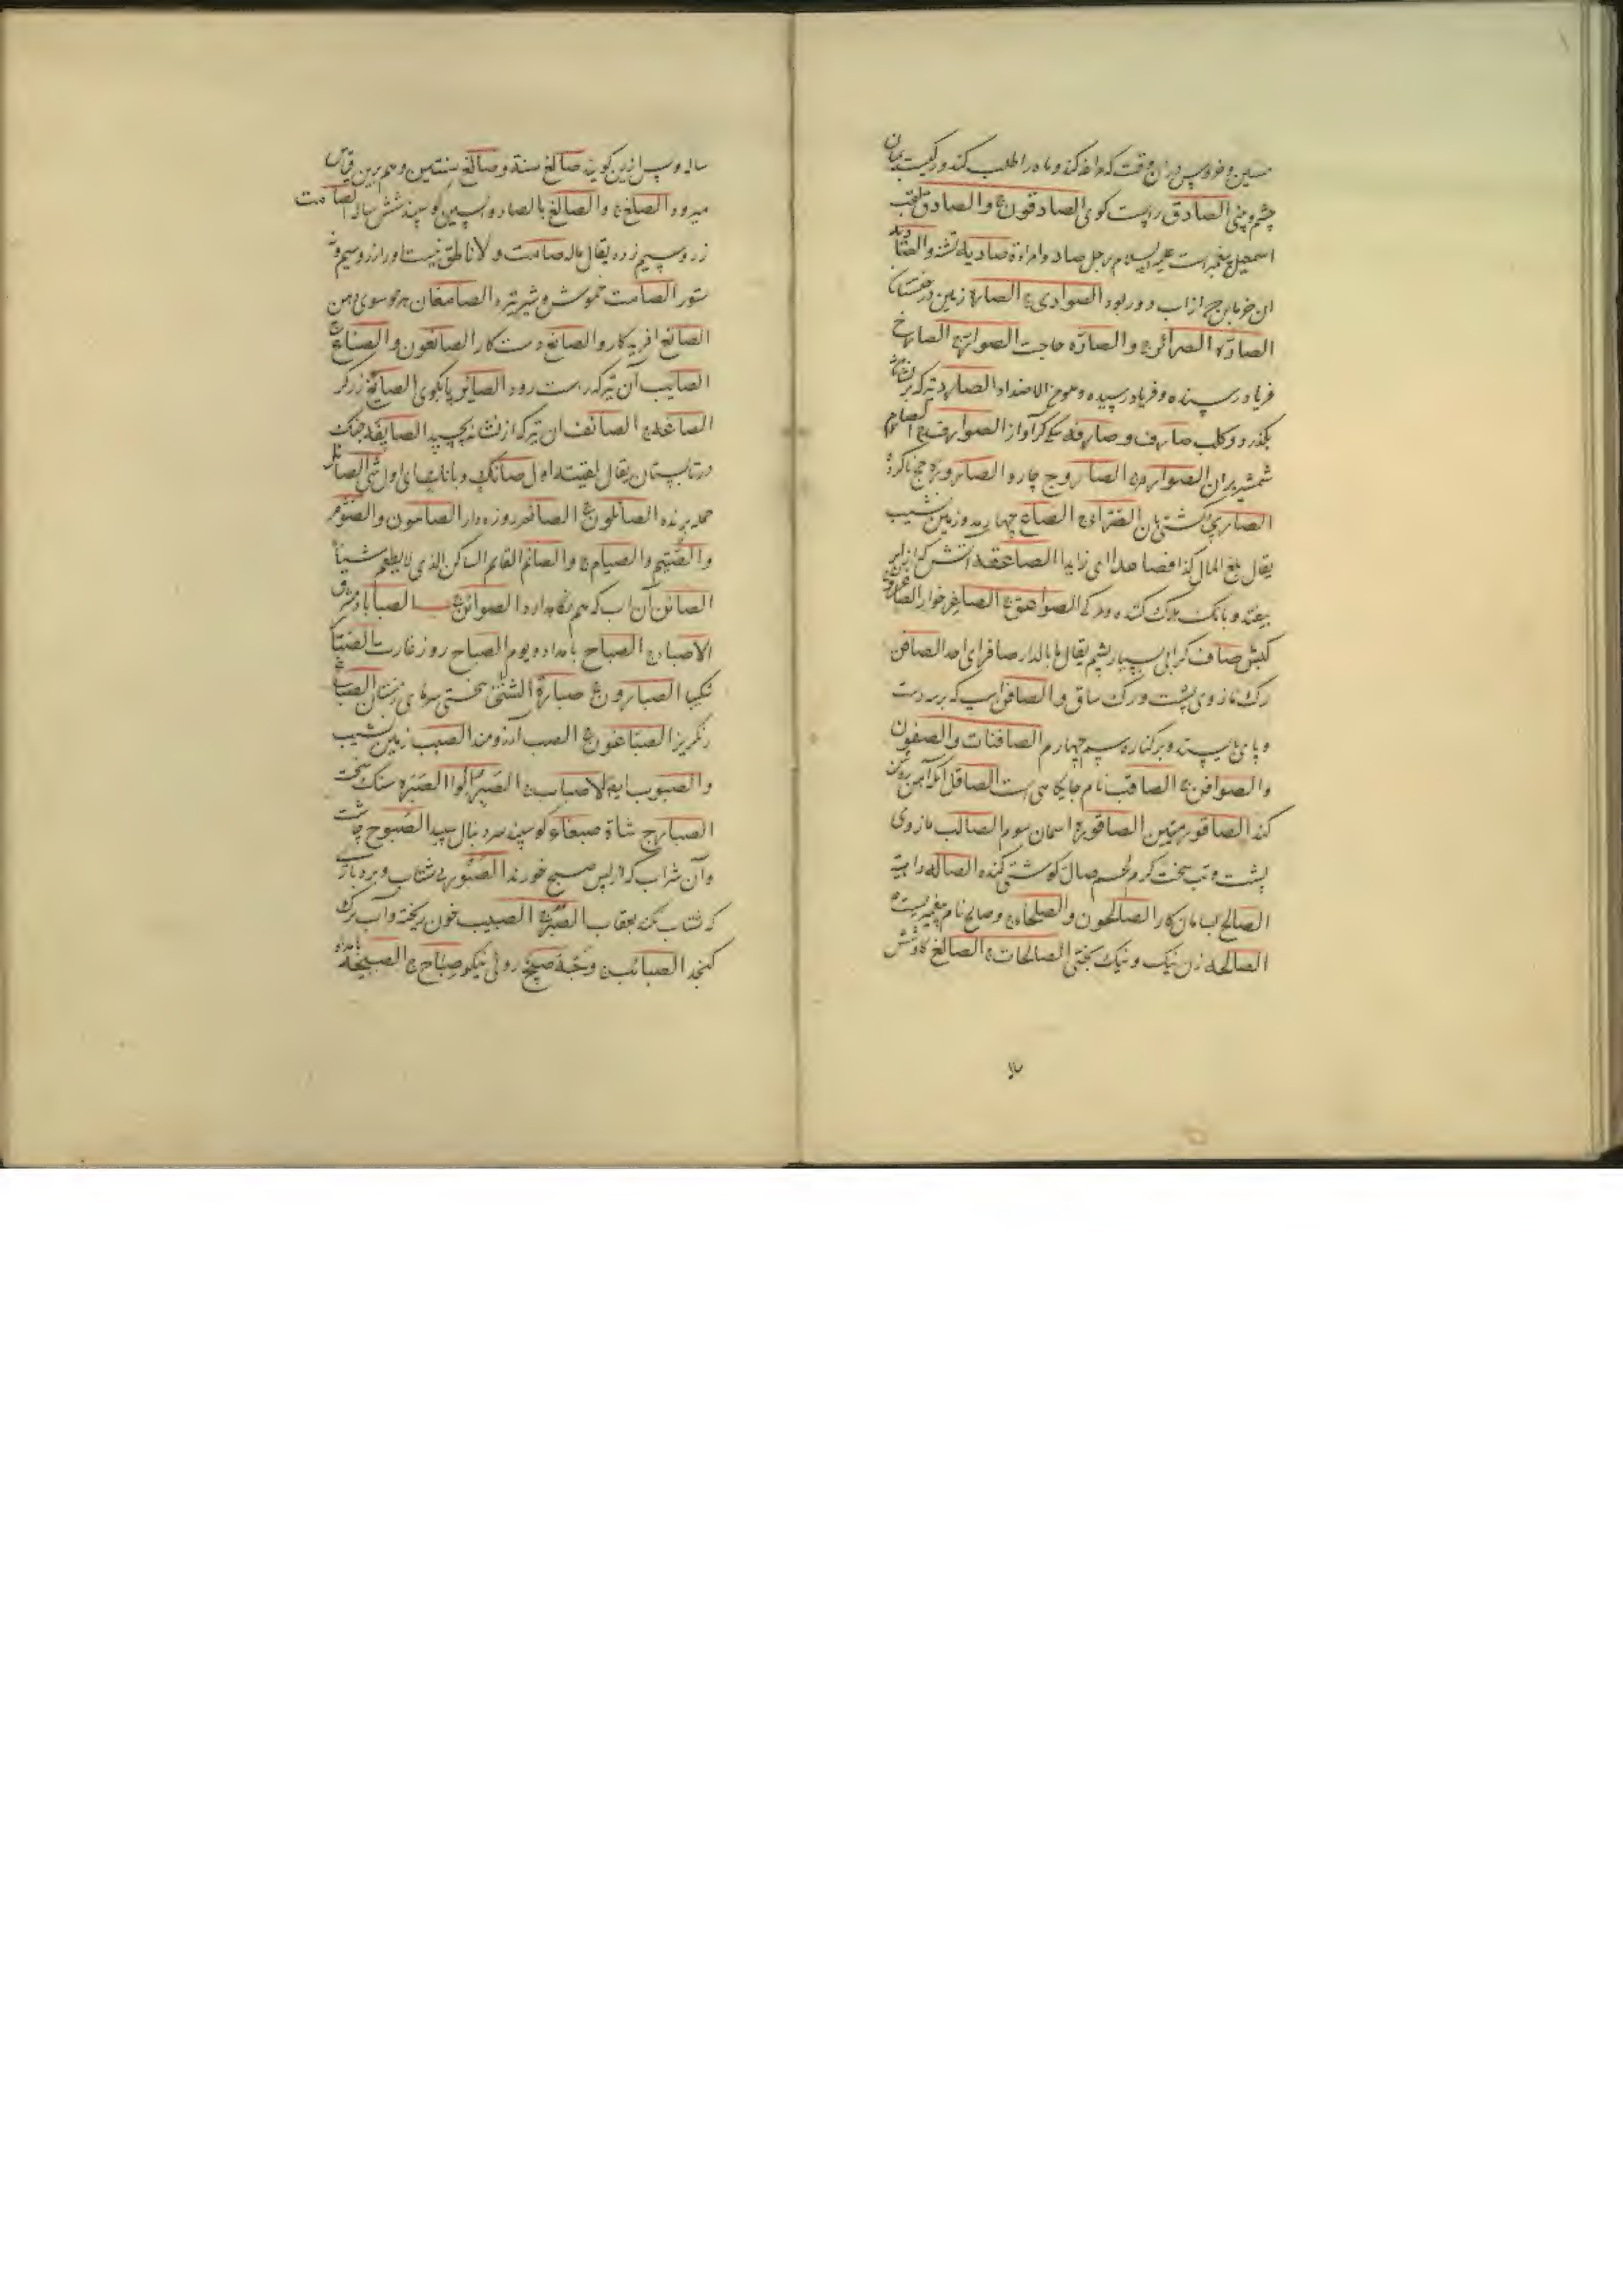 مسین و خروس در آن وقت که مادر را طلب کند و
چشم و بینی الصادق راست کوی الصادقون ج والصادق لقب
اسمعیل پیغمبر است علیه السلام رجل صاد وامراة صادیة تشنه والصادیة
ان خرمابن ج از اب دور بود الصوادی ج الصارة زمین درختستان
الصارّة الصرائر ج والصارّه حاجت الصوارّ ج الصارخ
فریاد رسنده و فریاد رسیده وهو من الاضداد الصارد تیر که بر نشانه
بکذرد وکلب صارف وصارفة آواز الصوارف ج الصارم
شمشیر بران الصوارم ج الصاروج چارو الصارورة حج ناکرده
الصاری کشتی بان الصرّاء ج الصاع چهار مد و زمین نشیب
یقال بلغ المال کذا فصاعدا ای زایدا الصاعقة اتش که از ابر
بیفتد و بانک هلاک کننده و مرک الصواعق ج الصاغر خوار
کبش صاف بسیار پشم یقال ما بالدار صافر ای احد الصافن
رک مازوی پشت ورک ساق والصافن اسپ که بر سه دست
وپای بایستد وبر کناره سم چهارم الصافنات والصفون
والصوافن ج الصاقب نام جایکاهی است الصاقل انکه آهن روشن
کند الصاقور میتین الصاقورة اسمان سوم الصالب مازوی
پشت و تب سخت کرم لحم صالّ کوشت کنده الصالة داهیة
الصالح بسامان کار الصالحون والصلحاء ج وصالح نام پیغمبریست
الصالحة زن نیک و نیک بختی الصالحات ج الصالغ کاو شش
ساله و پس ازین کویند صالغ سنة وصالغ سنتین وهم برین قیاس
میرود الصلّغ ج والصالغ بالصاد والسین کوسپند شش ساله الصامت
زر وسیم زده یقال ماله صامت ولا ناطق نیست اورا زر وسیم ونه
ستور الصامت خموش وشیر الصامغان هر دو سوی دهن
الصانع افریدکار والصانع دست کار الصانعون والصنّاع ج
الصایب آن تیر که راست رود الصائر الصائغ زرکر
الصاغة ج الصائف ان تیر که از نشانه بچسپد الصایفة جنک
در تابستان یقال لقیته اول صائک وبائک ای اول شیء الصائل
حمله برنده الصائلون ج الصائم روزه دار الصائمون والصوّم
والصُیّم والصیام ج والصائم القائم الساکن الذی لا یطعم شیئا
الصائن آن اب که هم نکاه دارد الصوائن ج الصبا باد مشرق
الاصباء ج الصباح بامداد ویوم الصباح روز غارت الصبّار
شکیبا الصبارون ج صبارّة الشتاء سختی سرمای زمستان الصباغ
رنکریز الصباغون ج الصبّ آرزومند الصبب زمین نشیب
والصبوب ایضا الاصباب ج الصبر الوا الصبرة سنک سخت
الصبار ج شاة صبغاء کوسپند سر دنبال سپید الصبوح چاشت
وآن شراب که از پس صبح خورند الصبور بی شتاب و بردبار
که شتاب نکند بعقاب الصبر ج الصبیب خون ریخته وآب برک
کنجد الصبائب ج وجه صبیح روئی نیکو صباح ج الصبیحة بامداد